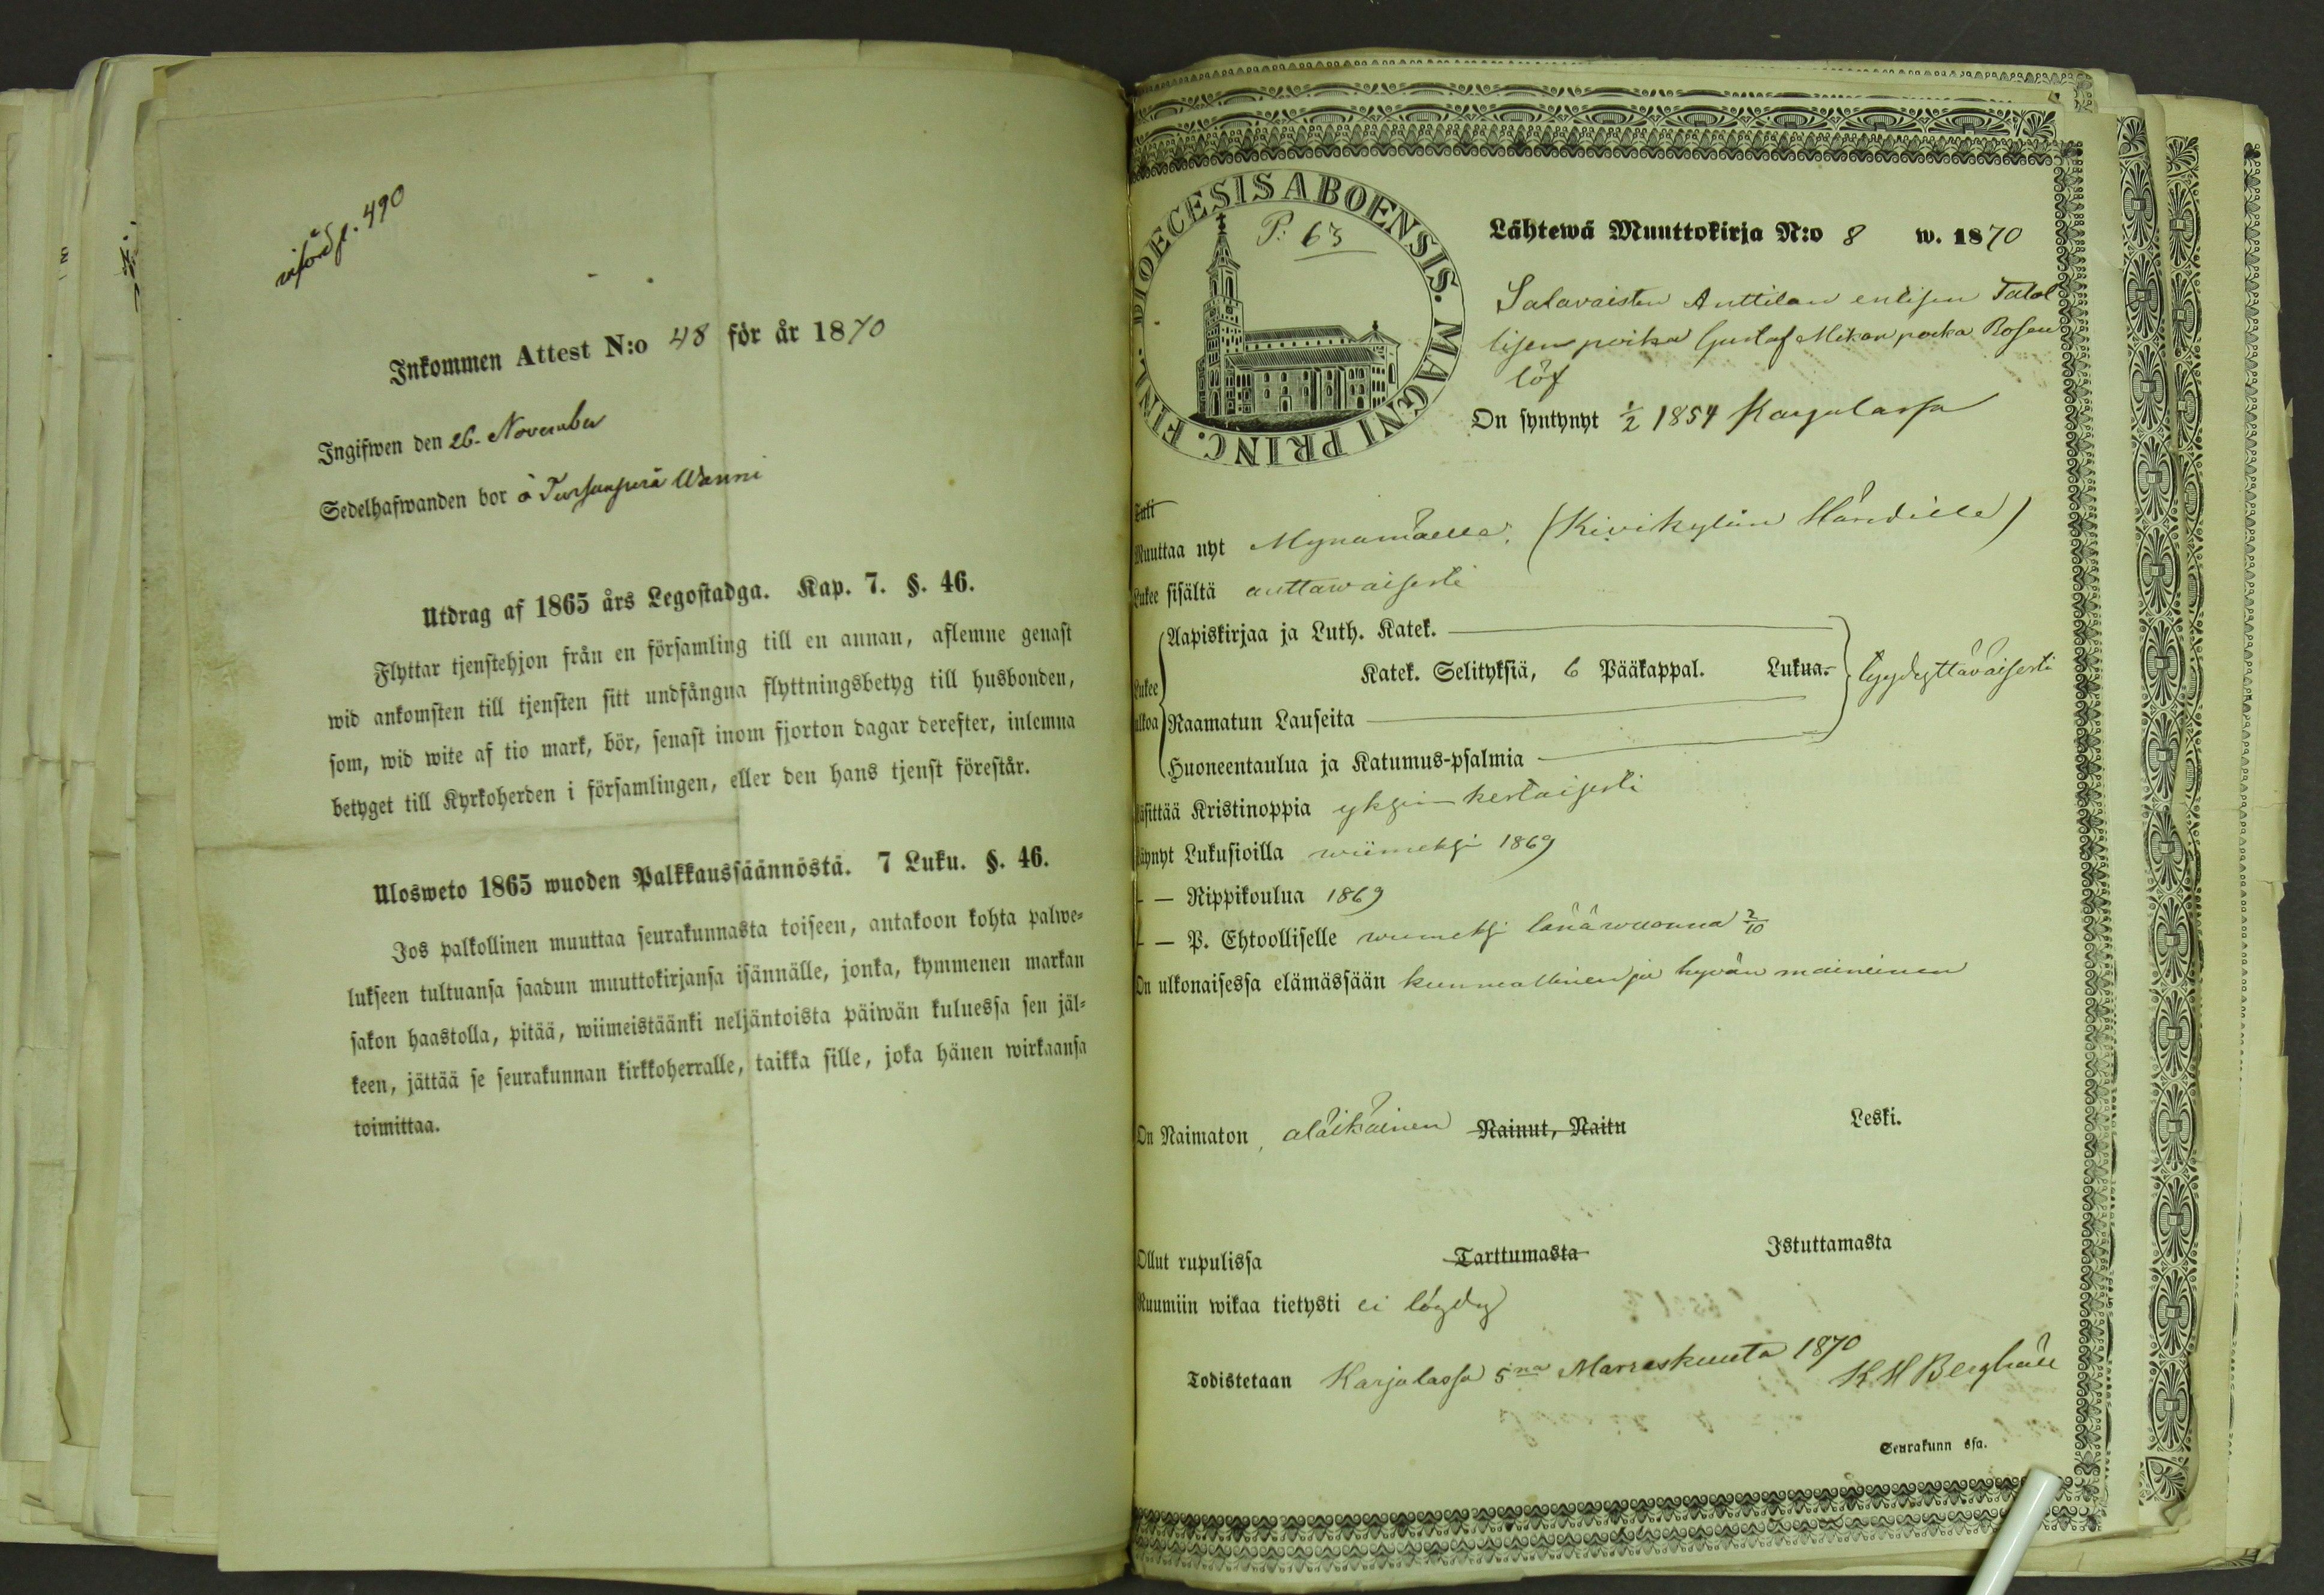 införd p. 490
Inkommen Attest N:o 48 för år 1870
Ingifwen den 26. November
Sedelhafwanden bor å Tursunperä Wanni
Utdrag af 1865 års Legostadga. Kap. 7. §. 46.
Flyttar tjenstehjon från en församling till en annan, aflemne genast
wid ankomsten till tjensten sitt undfångna flyttningsbetyg till husbonden,
som, wid wite af tio mark, bör, senast inom fjorton dagar derefter, inlemna
betyget till Kyrkoherden i församlingen, eller den hans tjenst förestår.
Ulosweto 1865 wuoden Palkkaussäännöstä. 7 Luku. §. 46.
Jos palkollinen muuttaa seurakunnasta toiseen, antakoon kohta palwe-
lukseen tultuansa saadun muuttokirjansa isännälle, jonka, kymmenen markan
sakon haastolla, pitää, wiimeistäänki neljäntoista päiwän kuluessa sen jäl-
keen, jättää se seurakunnan kirkkoherralle, taikka sille, joka hänen wirkaansa
toimittaa.
DIOECESIS ABOENSIS. MAGNI PRINC. FINL.
P: 63
Lähtewä Muuttokirja N:o 8 w. 1870
Salavaisten Anttilan entisen Talol
lisen poika Gustaf Mikon poika Rosen
löf
On syntynyt ½ 1854 Karjalassa
Tuli
Muuttaa nyt Mynämäelle. (Kivikylän Härdille)
Lukee sisältä auttawaisesti
Aapiskirjaa ja Luth. Katek.
Katek. Selityksiä, 6 Pääkappal. Lukua.
Lukee ulkoa
tyydyttäväisesti
Raamatun Lauseita
Huoneentaulua ja Katumus-psalmia
Käsittää Kristinoppia yksin-kertaisesti
Käynyt Lukusioilla wiimeksi 1869
— — Rippikoulua 1869
— — P. Ehtoolliselle wiimeksi tänäwuonna 2/10
On ulkonaisessa elämässään kunniallinen ja hyvän maineinen
On Naimaton, aläikäinen Nainut, Naitu Leski.
Ollut rupulissa Tarttumasta Istuttamasta
Ruumiin wikaa tietysti ei löydy
Todistetaan Karjalassa 5na Marraskuuta 1870
K H Berghäll
Seurakunn ssa.